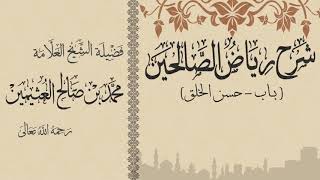 شرح رياض الصالحين
(باب - حسن الخلق)
فضيلة الشيخ العلامة
محمد بن صالح العثيمين
رحمه الله تعالى